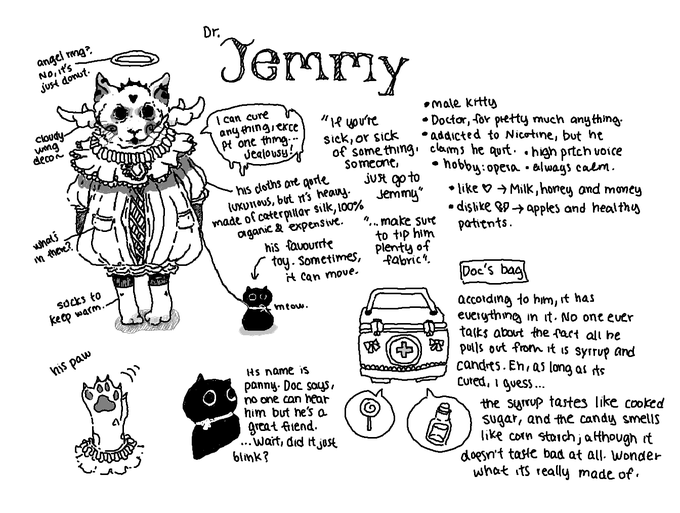 Dr.
Jemmy
angel ring?.
No, it's
just donut.
cloudy
wing
deco~
I can cure
anything, exce
pt one thing...
Jealousy!
his cloths are quite
luxurious, but it's heavy.
made of caterpillar silk, 100%
organic & expensive.
what's
in there?.
his favourite
toy. Sometimes,
it can move.
meow.
socks to
keep warm.
"If you're
sick, or sick
of something,
someone,
just go to
Jemmy"
"...make sure
to tip him
plenty of
fabric".
•male kitty
•Doctor, for pretty much anything.
•addicted to Nicotine, but he
claims he quit. •high pitch voice
•hobby: opera •always calm.
•like ♡ → Milk, honey and money
•dislike → apples and healthy
patients.
Doc's bag
according to him, it has
everything in it. No one ever
talks about the fact all he
pulls out from it is syrup and
candies. Eh, as long as its
cured, I guess...
the syrup tastes like cooked
sugar, and the candy smells
like corn starch; although it
doesn't taste bad at all. Wonder
what its really made of.
his paw
His name is
panny. Doc says,
no one can hear
him but he's a
great friend.
...Wait, did it just
blink?